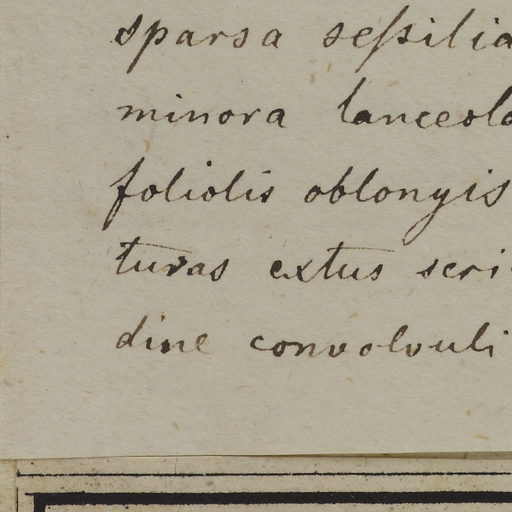 sparsa seſsilia
minora lanceola
foliolis oblongis
turas extus seri
dine convolvuli